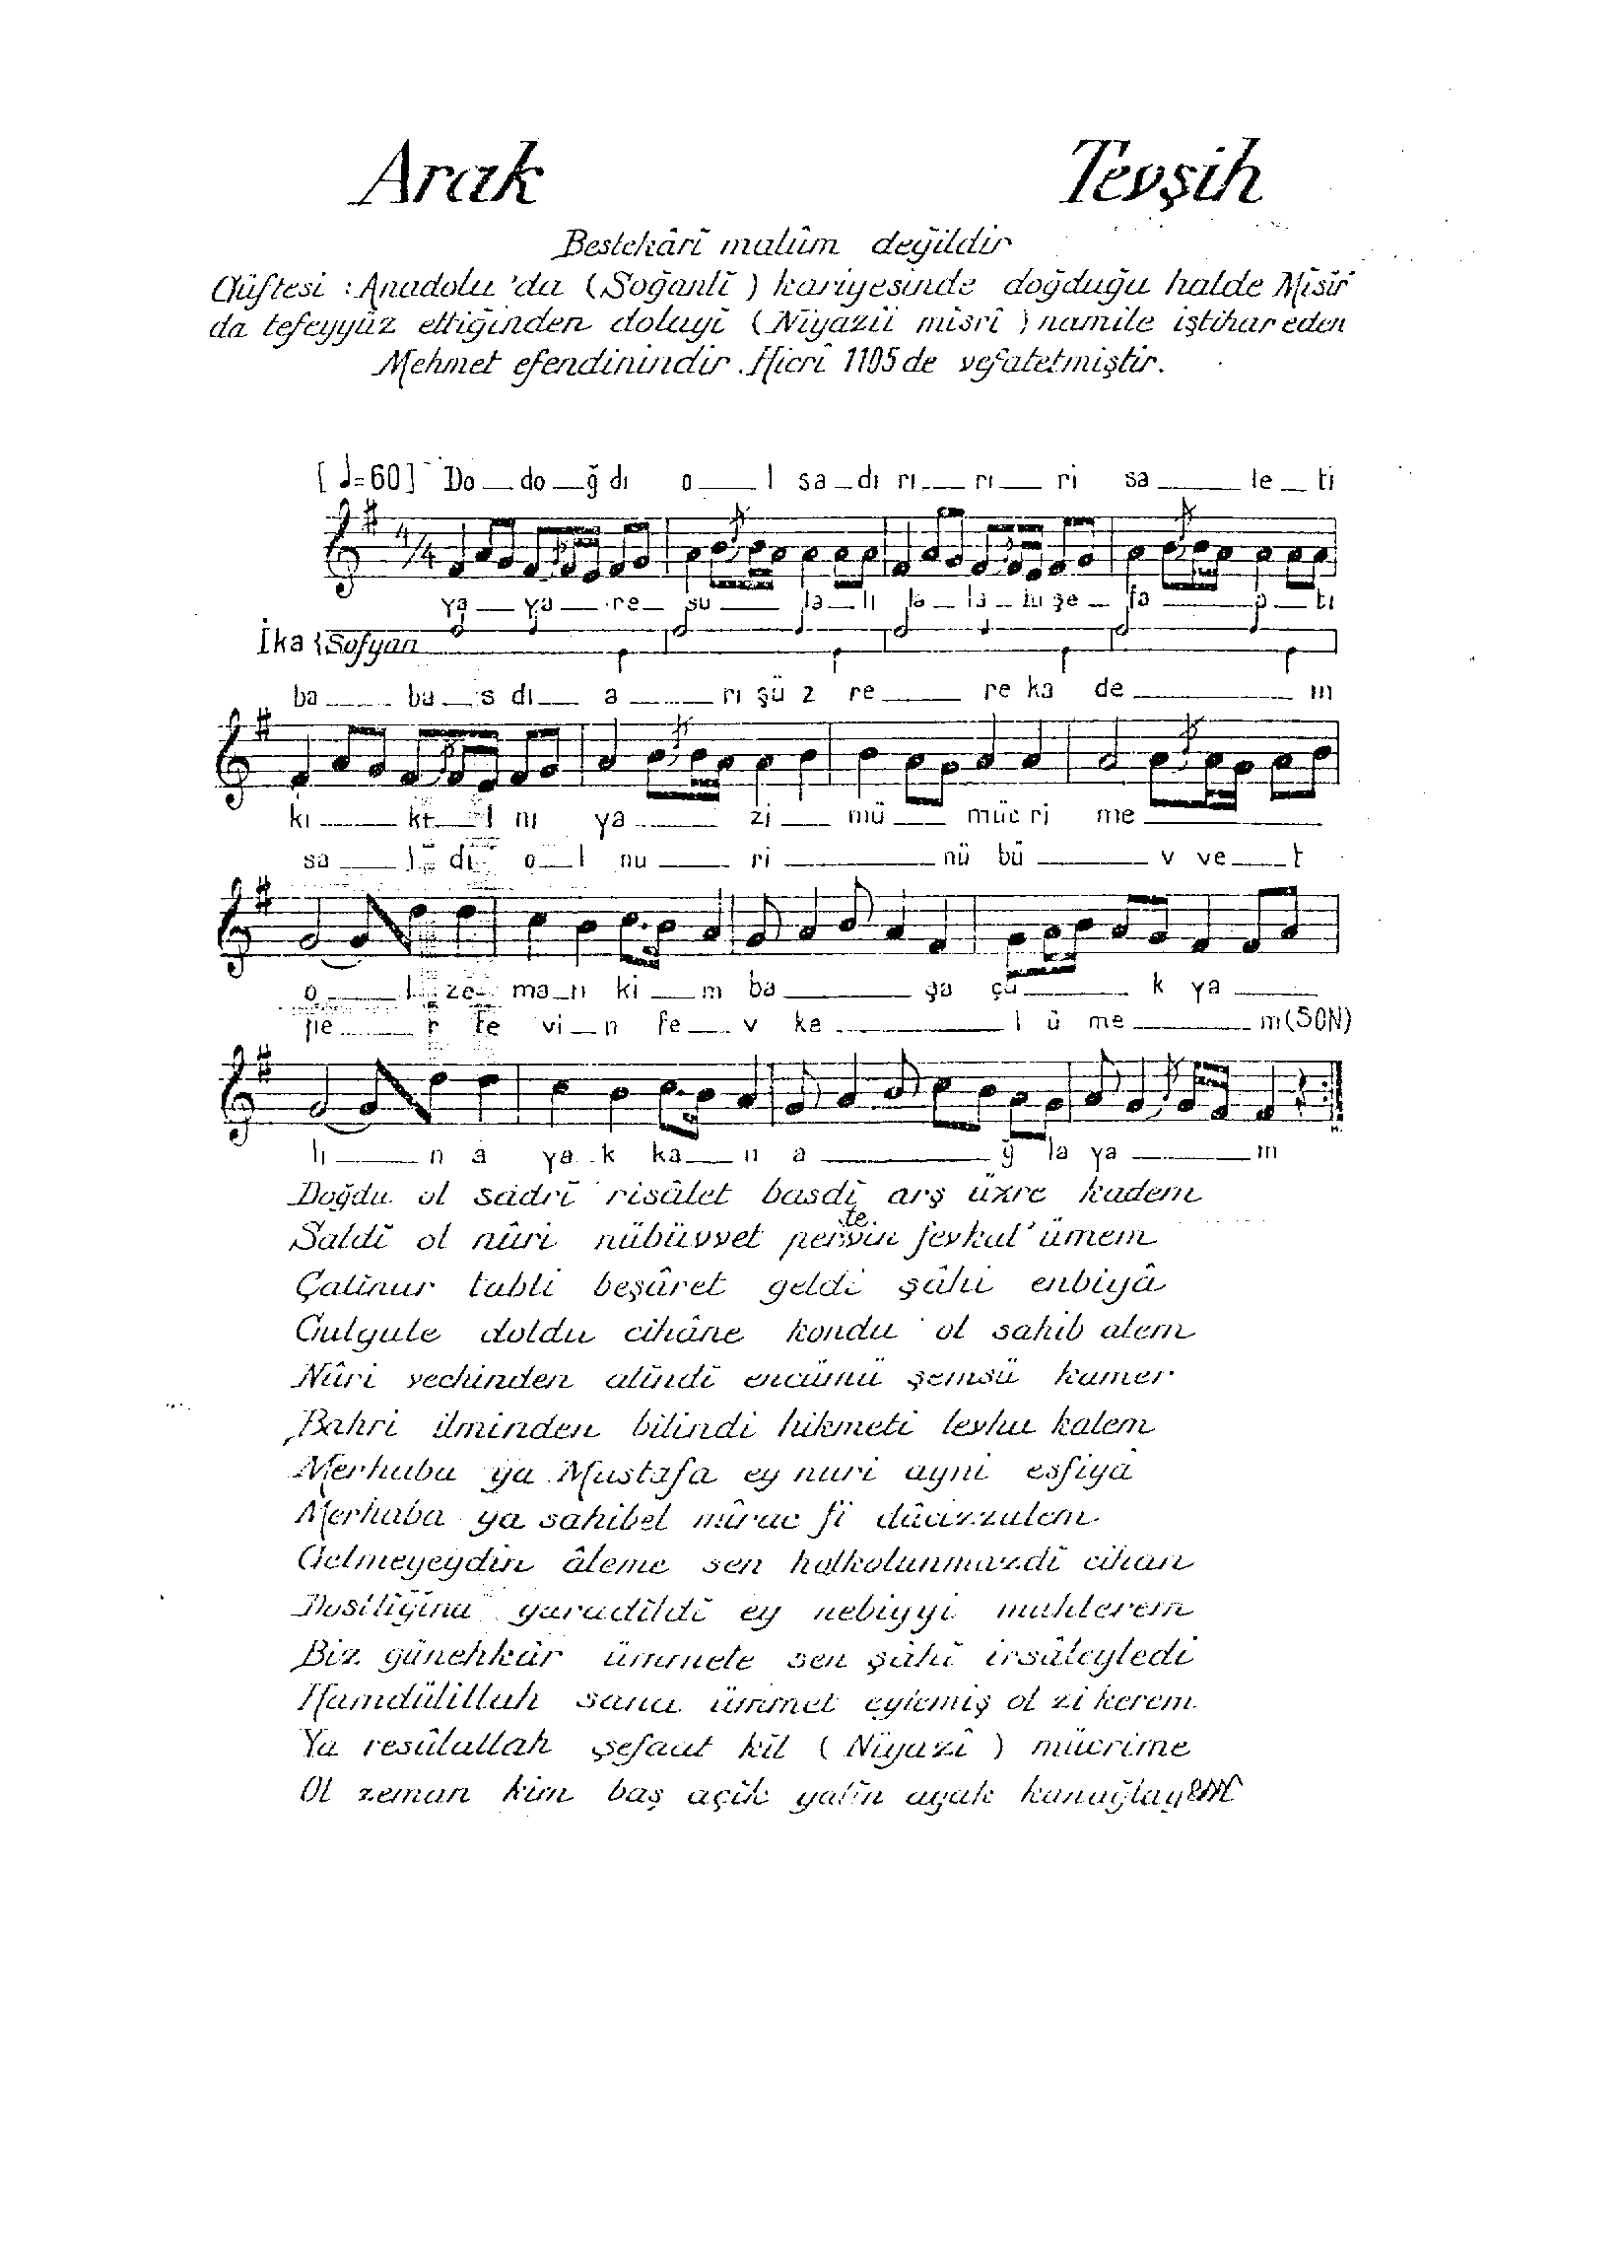 Arak Tevşih
Bestekârî malûm değildir
Güftesi : Anadolu 'da (Soğanlî) kariyesinde doğduğu halde Mîsîr
da tefeyyüz ettiğinden dolayî (Niyazii mîsrî) namile iştihar eden
Mehmet efendinindir. Hicrî 1105 de vefatetmiştir.
[♩=60] Do__do__ğ dı o__l sa_dı rı__rı__ri sa__le_ti
4/4
ya__ya__re_ su__la_li la_la_tu şe_fa__a_ti
İka {Sofyan
ba__ba_s dı_ a__rı şü z re__re ka de__m
kı__kı_l ni ya__zi__mü__müc ri me__
sa__l dı o_l nu__ri__nü bü__v ve__t
o__l ze_ ma_n ki_m ba__şa çu__k ya__
pe__r te vi_n fe_v ka__l ü me__m (SON)
lı__n a ya_k ka_n a__ğ la ya__m
Doğdu ol sadrî risâlet basdî arş üzre kadem
te
Saldî ol nûri nübüvvet pervin fevkal' ümem
Çalînur tabli beşâret geldi şâhi enbiyâ
Gulgule doldu cihâne kondu ol sahib alem
Nûri vechinden alîndî encümü şemsü kamer
Bahri ilminden bilindi hikmeti levhu kalem
Merhaba ya Mustafa ey nuri ayni esfiyâ
Merhaba ya sahibel mîrac fi dâcizzulem
Gelmeyeydin âleme sen halkolunmazdî cihan
Dostlîğîna yaradîldî ey nebiyyi muhterem
Biz günehkâr ümmete sen şâhî irsâleyledi
Hamdülillah sana ümmet eylemiş ol zi kerem
Ya resûlallah şefaat kîl (Niyazî) mücrime
Ol zeman kim baş açîk yalîn ayak kanağlayem